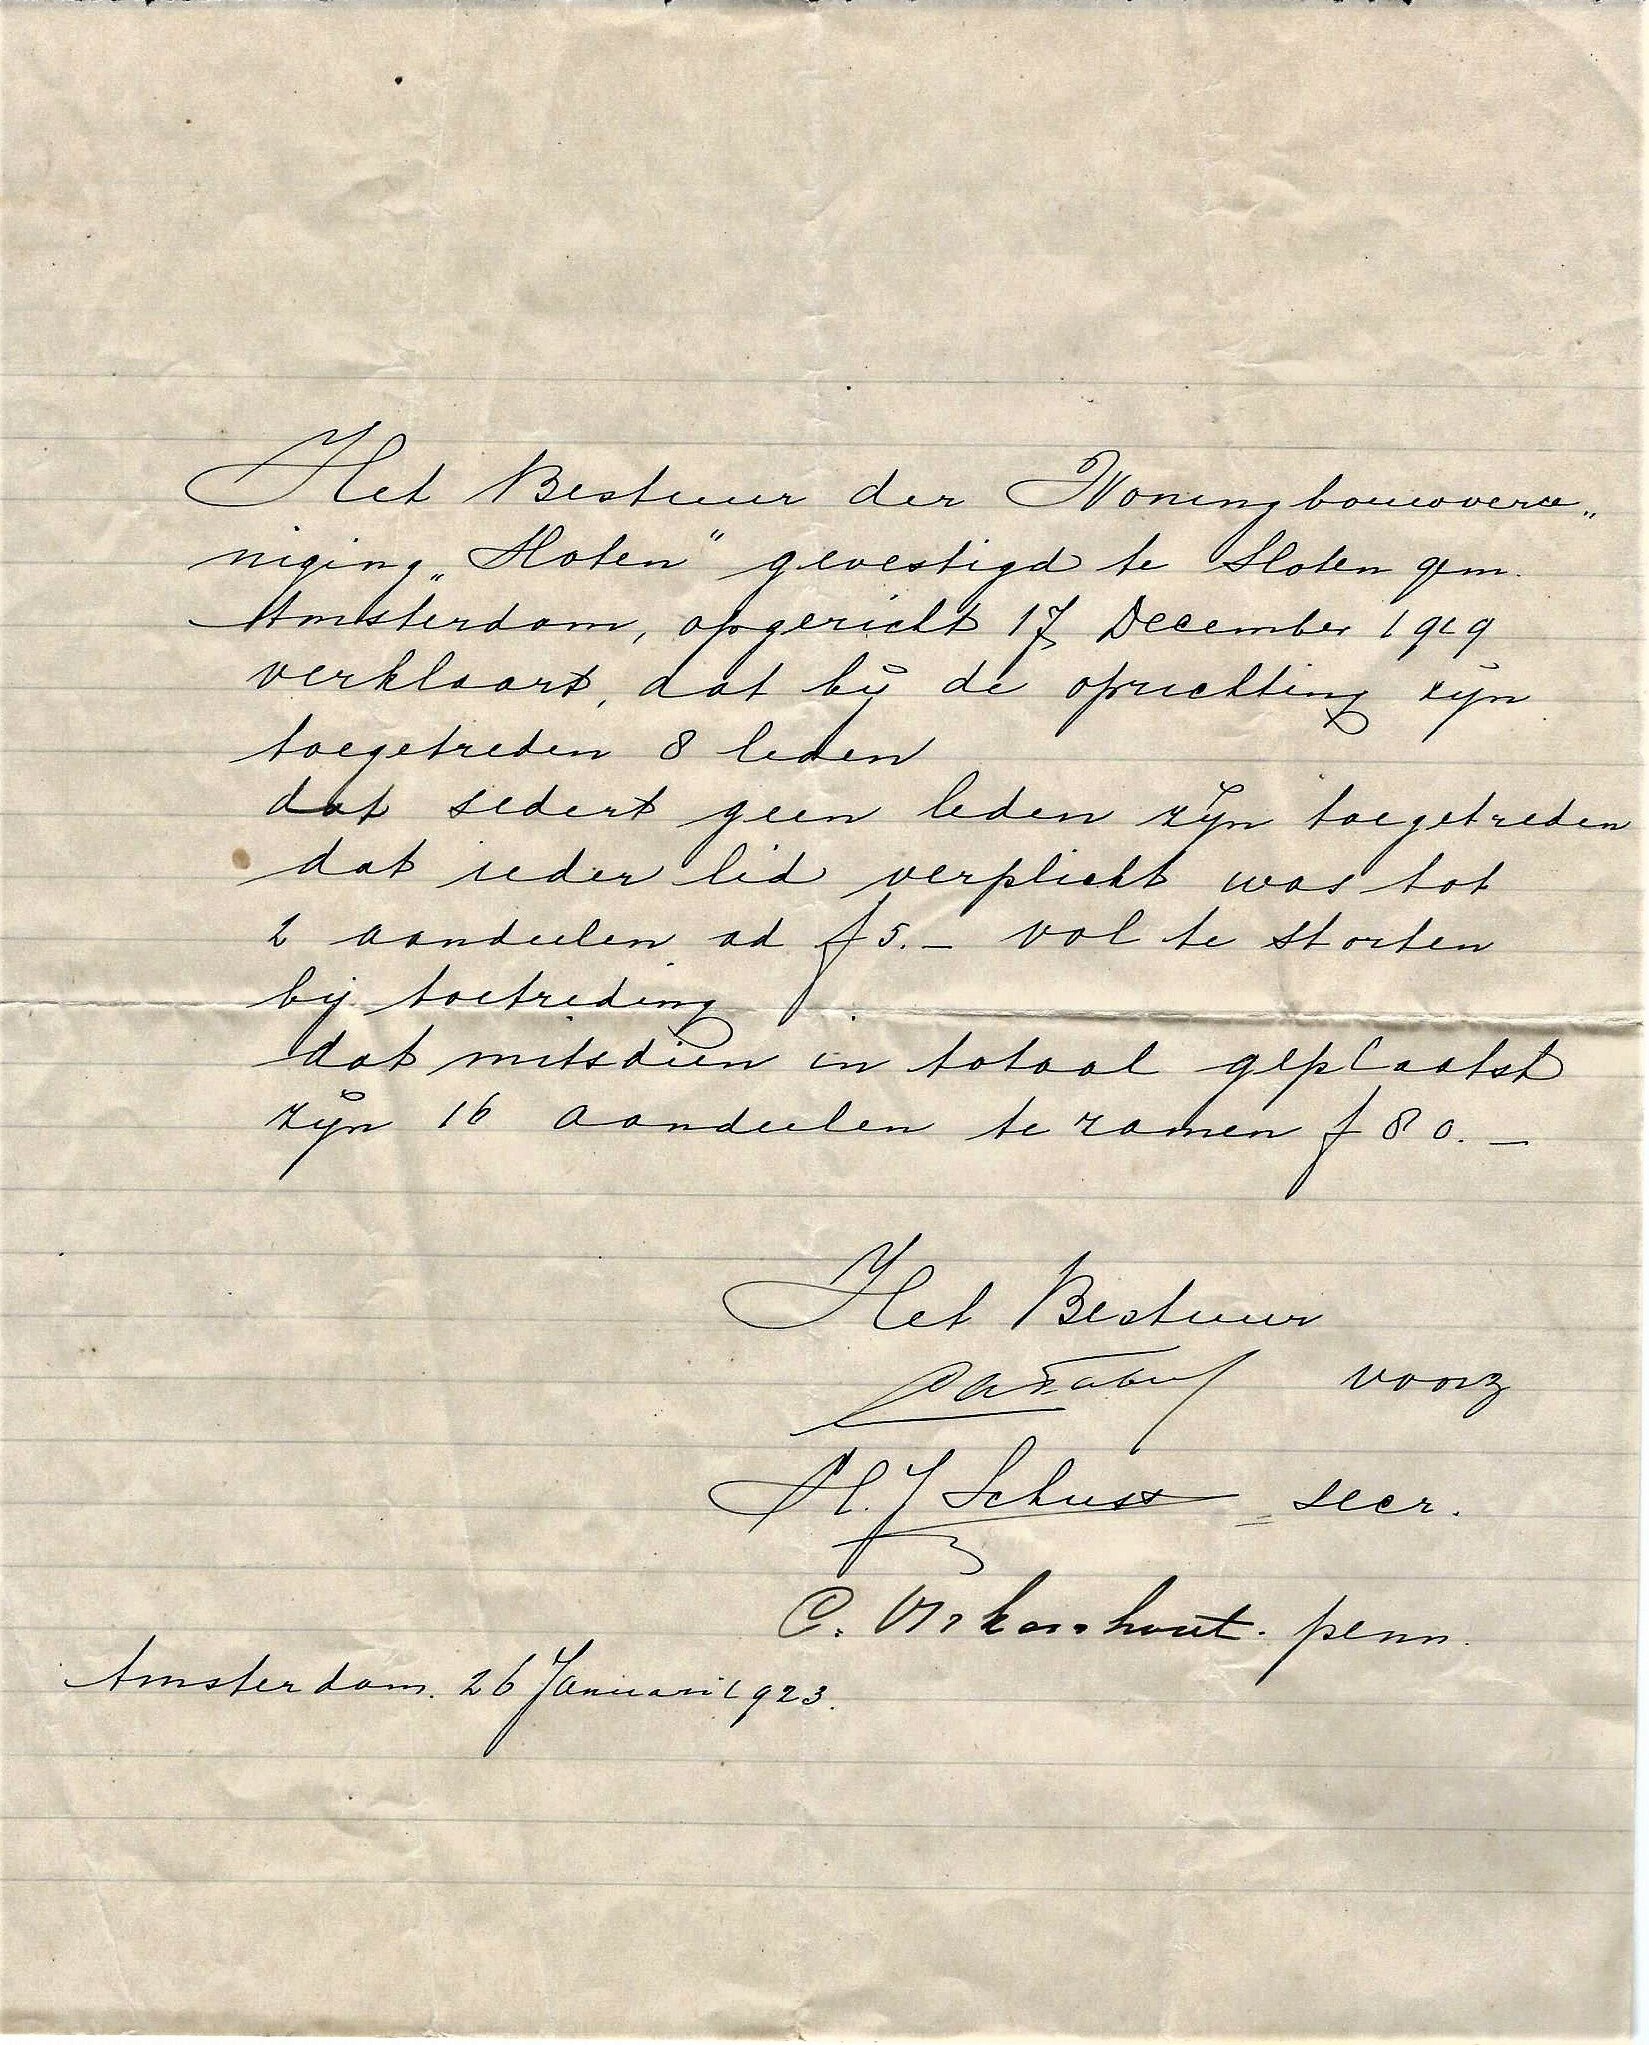 Het Bestuur der Woningbouwveree„
niging „Sloten" gevestigd te Sloten gem.
Amsterdam, opgericht 17 December 1919
verklaart, dat bij de oprichting zijn
toegetreden 8 leden
dat sedert geen leden zijn toegetreden
dat ieder lid verplicht was tot
2 aandeelen ad f 5.— vol te storten
bij toetreding
dat mitsdien in totaal geplaatst
zijn 16 aandeelen te zamen f 80.—
Het Bestuur
voorz
H. J Schust secr.
C. penn.
Amsterdam. 26 Januari 1923.